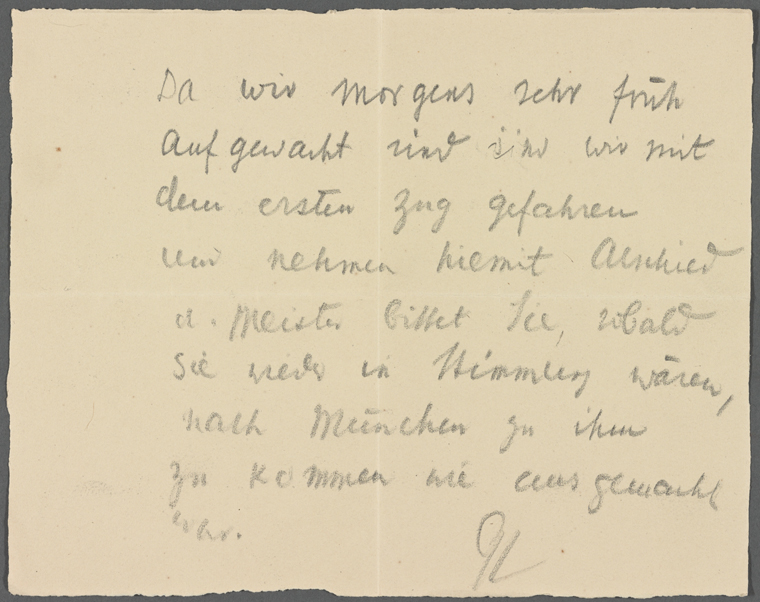 Da wir morgens sehr früh
aufgewacht sind sind wir mit
dem ersten Zug gefahren
und nehmen hiemit Abschied
u. Meister bittet Sie, sobald
Sie wieder in Stimmung wären,
nach München zu ihm
zu kommen wie ausgemacht
war.